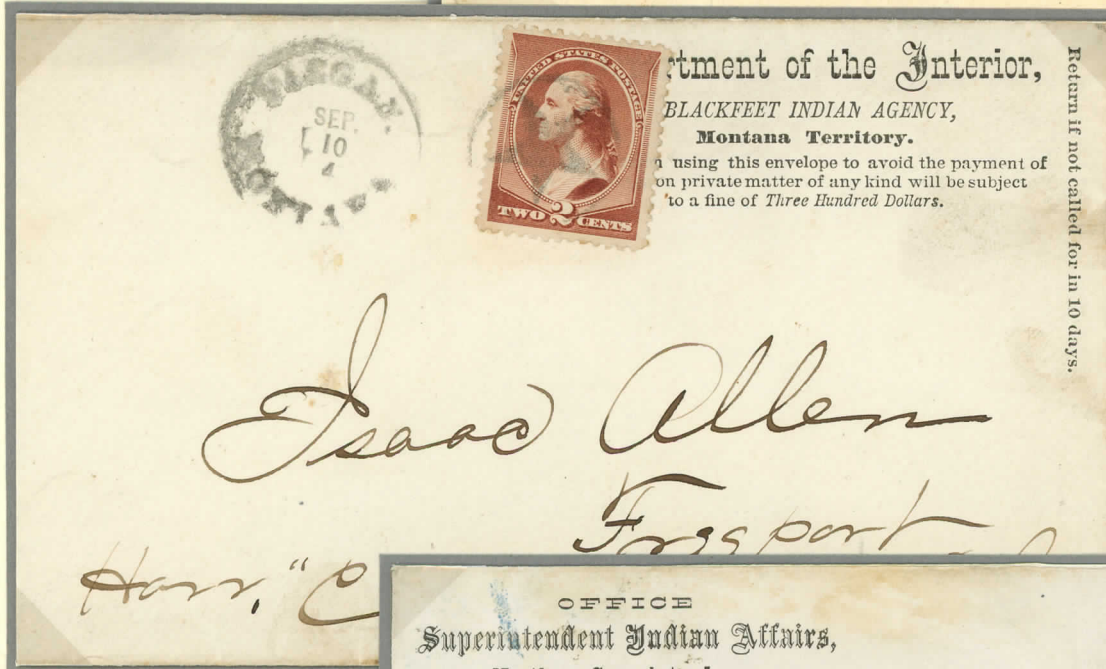 SEP.
10
4
UNITED STATES POSTAGE
TWO 2 CENTS
rtment of the Interior,
BLACKFEET INDIAN AGENCY,
Montana Territory.
n using this envelope to avoid the payment of
on private matter of any kind will be subject
to a fine of Three Hundred Dollars.
Return if not called for in 10 days.
Isaac Allen
Freeport
Harr, "C
OFFICE
Superintendent Indian Affairs,